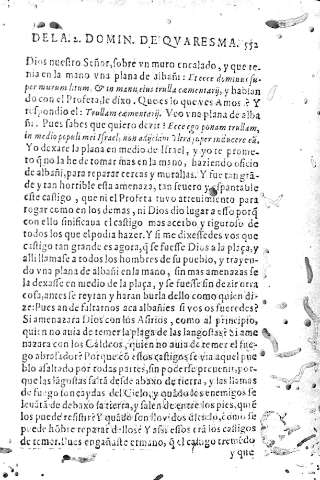 DE LA. 2. DOMIN. DE QVARESMA. 552
Dios nuestro Señor, sobre vn muro encalado, y que te-
nia en la mano vna plana de albañi: Et ecce dominus su-
per murum litum, & in manu eius trulla cæmentarij, y habian
do con el Profeta, le dixo. Que es lo que ves Amos? Y
respondio el: Trullam cæmentarij. Veo vna plana de alba
ñi. Pues sabes que quiero dezir? Ecce ego ponam trullam,
in medio populi mei Israel, non adijciam vltra super inducere eū.
Yo dexare la plana en medio de Israel, y yo te prome-
to q̃ no la he de tomar mas en la mano, haziendo oficio
de albañi, para reparar cercas y murallas. Y fue tan grā-
de y tan horrible esta amenaza, tan seuero y espantable
este castigo, que ni el Profeta tuuo atreuimiento para
rogar como en los demas, ni Dios dio lugar a esso porq̃
con ello sinificaua el castigo mas acerbo y riguroso de
todos los que el podia hazer. Y si me dixessedes vos que
castigo tan grande es agora, q̃ se fuesse Dios a la plaça, y
alli llamase a todos los hombres de su pueblo, y trayen-
do vna plana de albañi en la mano, sin mas amenazas se
la dexasse en medio de la plaça, y se fuesse sin dezir otra
cosa, antes se reyran y haran burla dello como quien di-
ze: Pues an de faltarnos aca albañies si vos os fueredes?
Si amenazara Dios con los Asirios, como al principio,
quien no auia de temer la plaga de las langostas? Si ame
nazara con los Caldeos, quien no auia de temer el fue-
go abrasador? Porque cō essos castigos se via aquel pue
blo asaltado por todas partes, sin poderse preuenir, por-
que las lāgostas saltā desde abaxo de tierra, y las llamas
de fuego son caydas del Cielo, y quādo los enemigos se
leuātā de debaxo la tierra, y salen de entre los pies, quiē
los puede resistir? Y quādo son llouidos del cielo, como se
puede hōbre reparar dellos? Y assi essos erā los castigos
de temer. Pues engañaste ermano, q̃ el castigo tremēdo
y que